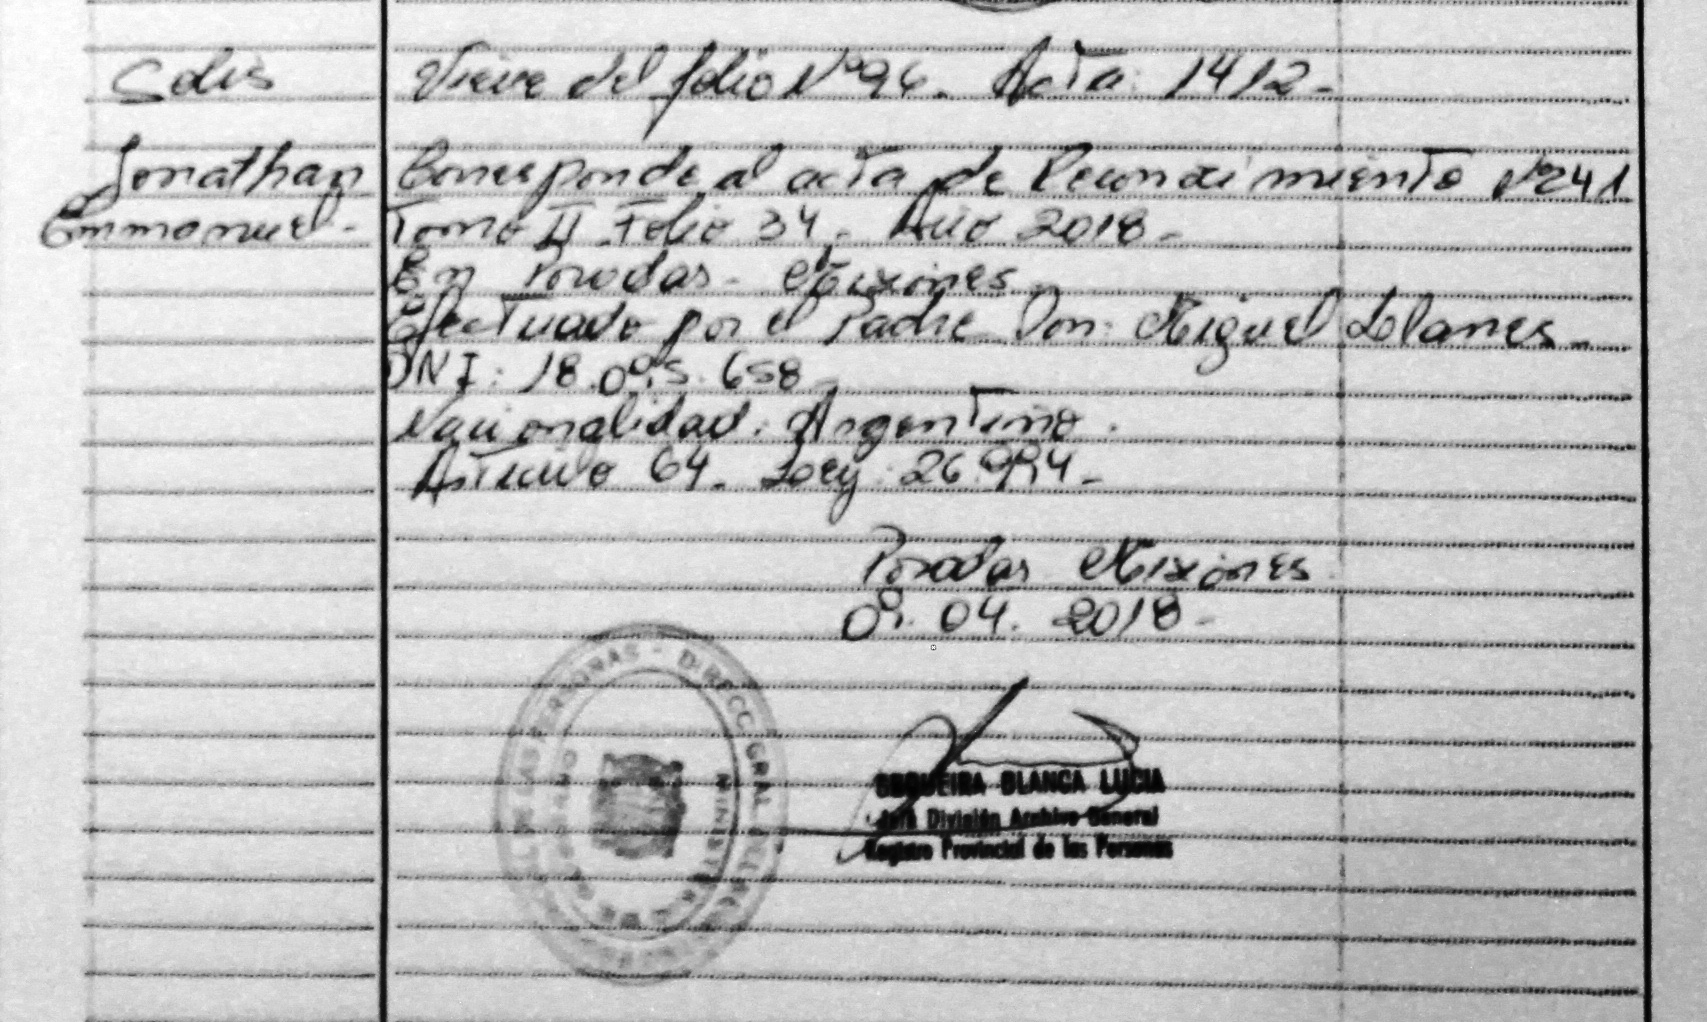 Solis
Viene del folio Nº 96. Acta: 1412.-
Jonathan
Emmanuel.-
Corresponde al acta de Reconocimiento Nº 241
Tomo II Folio 34. Año 2018.-
En Posadas - Misiones.
Efectuado por el Padre Don: Miguel Llanes.-
DNI: 18.095.658.-
Nacionalidad: Argentino.
Artículo 64. Ley: 26.994.-
Posadas Misiones
09.04.2018.-
DE LAS PERSONAS - DIRECC. GRAL. DEL
MINISTERIO DE GOBIERNO
SEQUEIRA BLANCA LUCIA
Jefa División Archivo General
Registro Provincial de las Personas